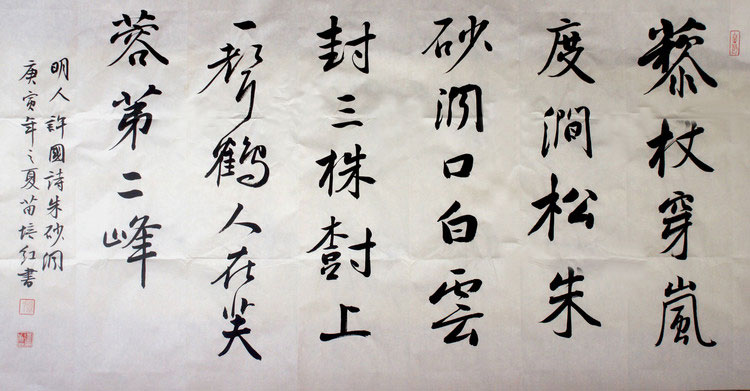 藜杖穿嵐
度澗松朱
砂洞口白雲
封三株樹上
一聲鶴人在芙
蓉第二峰
明人許國詩朱砂洞
庚寅年之夏苗培红書